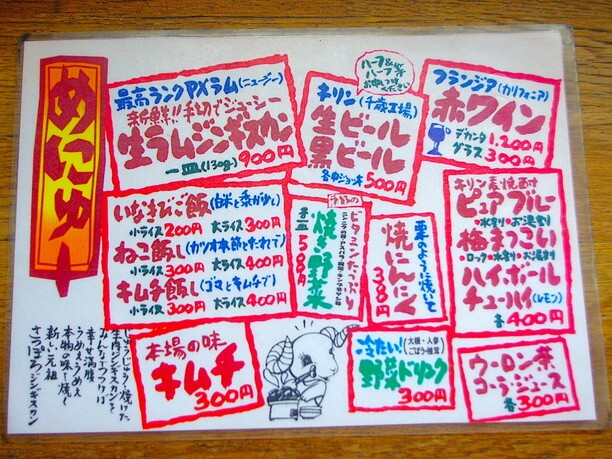 めにゅー
最高ランクPXラム(ニュージー)
新鮮!!手切でジューシー
生ラムジンギスカン
一皿(130g) 900円
ハーフ&ハーフ等
お申しつけ
ください
キリン(千歳工場)
生ビール
黒ビール
各中ジョッキ 500円
フランジア(カリフォルニア)
赤ワイン
デカンタ 1,200円
グラス 300円
いなきびご飯(白米と黍が少々)
小ライス 200円 大ライス 300円
ねこ飯し(カツオ本節とたれで)
小ライス 300円 大ライス 400円
キムチ飯し(ゴマとキムチで)
小ライス 300円 大ライス 400円
ビタミンたっぷり
焼き野菜
一皿 500円
栗のように焼いて
焼にんにく
300円
キリン麦焼酎
ピュアブルー
・水割り・お湯割り
梅まっこい
・ロック・水割り・お湯割
ハイ・ボール
チューハイ(レモン)
各400円
本場の味
キムチ
300円
冷たい!
大根・人参
ごぼう・椎茸
野菜ドリンク
300円
ウーロン茶
コーラ・ジュース
各300円
じゅうじゅう焼けた
生肉ジンギスカンを
みんなでつつけば
幸せ満腹
うめぇうめぇ
本物の味〜焼〜
新しい元祖
さっぽろジンギスカン